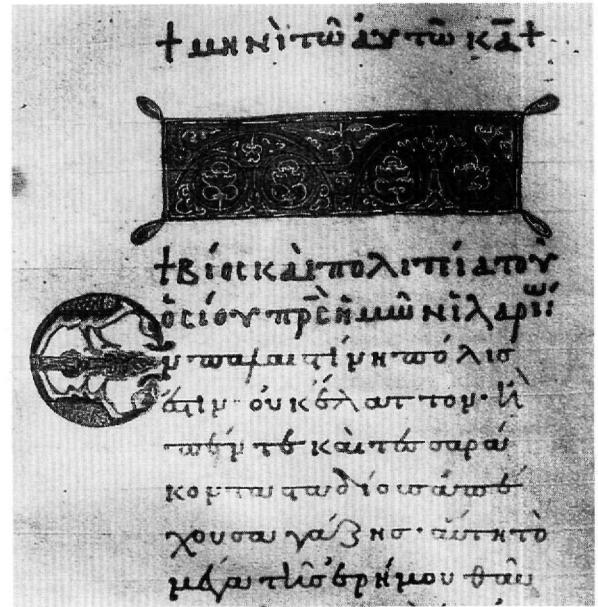 + μηνὶ τῶ ἀυτῶ κα̅ +
+ Βίος καὶ πολιτεία τοῦ
ὁσίου πρ̅ς ἡμῶν ἱλαρίω:
Ἐν παλαιστίνη πόλισ
ἐστὶν· οὐκ ἔλαττον· ἢ
πέντε καὶ τεσσαρά
κοντα σταδίοις ἀπέ
χουσα γάζης· αὕτη τὸ
μέγα τῆς ἐρήμου θαῦ